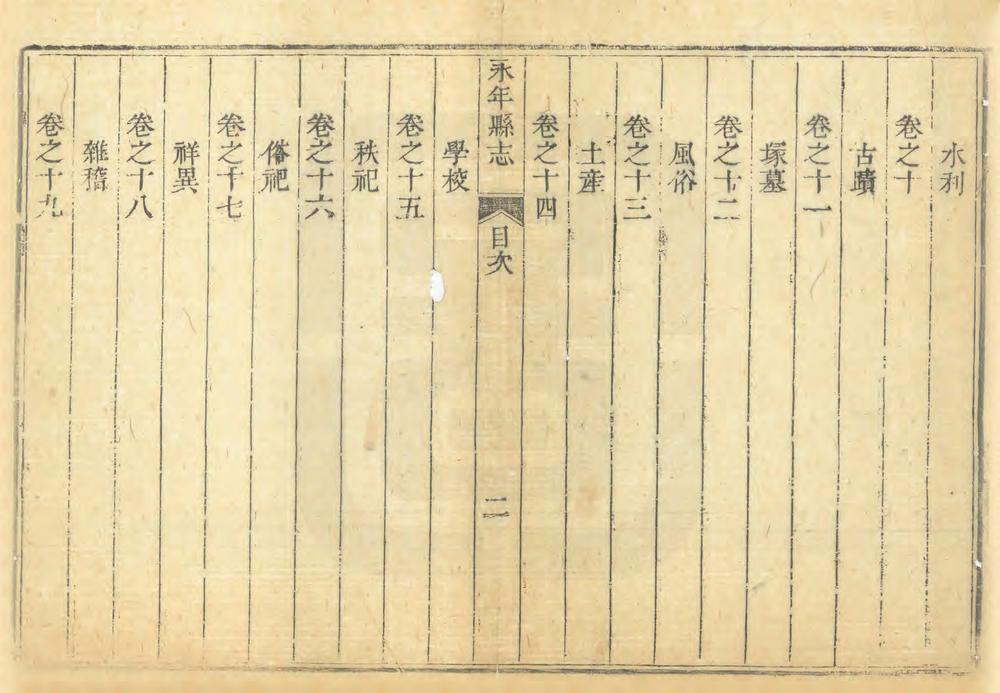 水利
卷之十
古蹟
卷之十一
塚墓
卷之十二
風俗
卷之十三
土産
卷之十四
永年縣志 目次 二
學校
卷之十五
秩祀
卷之十六
俗祀
卷之十七
祥異
卷之十八
雜稽
卷之十九